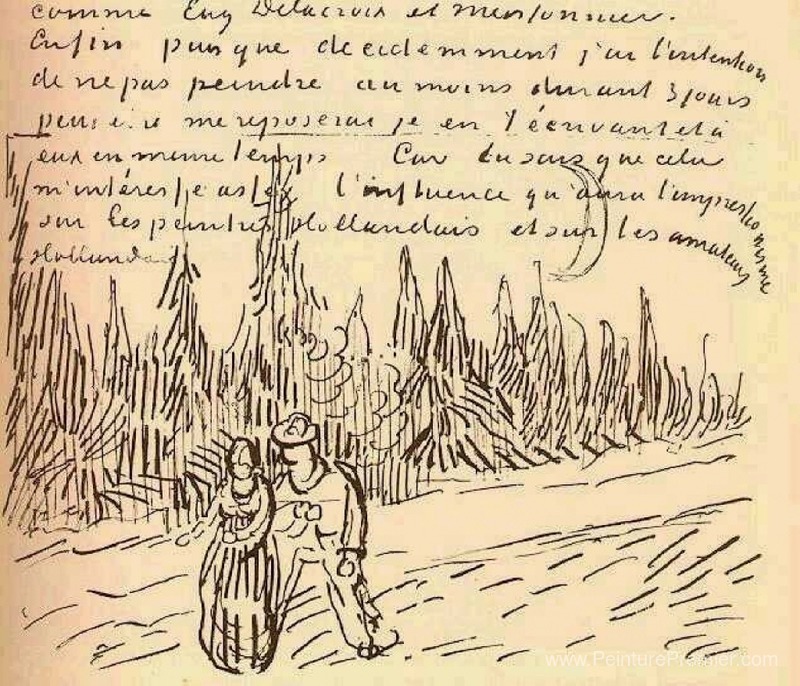 comme Eug Delacroix et meissonnier.
Enfin puisque decidemment j'ai l'intention
de ne pas peindre au moins durant 3 jours
peut être me reposerai je en t'écrivant et à
eux en meme temps Car tu sais que cela
m'intéresse assez l'influence qu'aura l'impressionisme
sur les peintres Hollandais et sur les amateurs
Hollandais
www.PeinturePremier.com